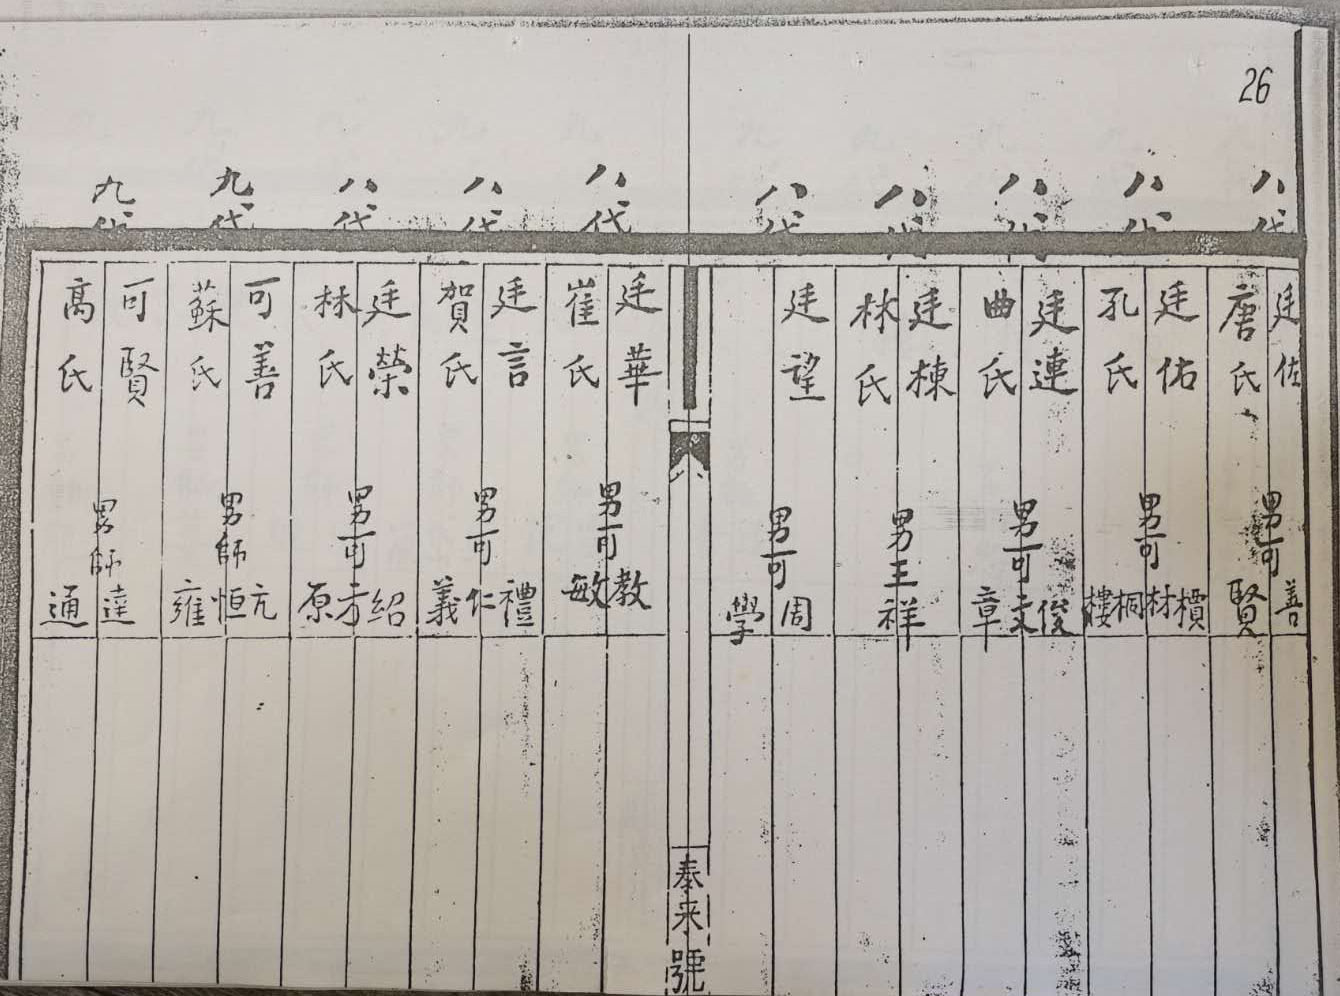 26
八代
廷佐
唐氏
男可
善
賢
八代
廷佑
孔氏
男可
檟
材
桐
樓
八代
廷連
曲氏
男可
俊
文
章
八代
廷棟
林氏
男王祥
八代
廷望
男可
周
學
奉來號
八代
廷華
崔氏
男可
教
敏
八代
廷言
賀氏
男可
禮
仁
義
八代
廷榮
林氏
男可
紹
方
原
九代
可善
蘇氏
男師
亢
恒
雍
九代
可賢
高氏
男師
達
通